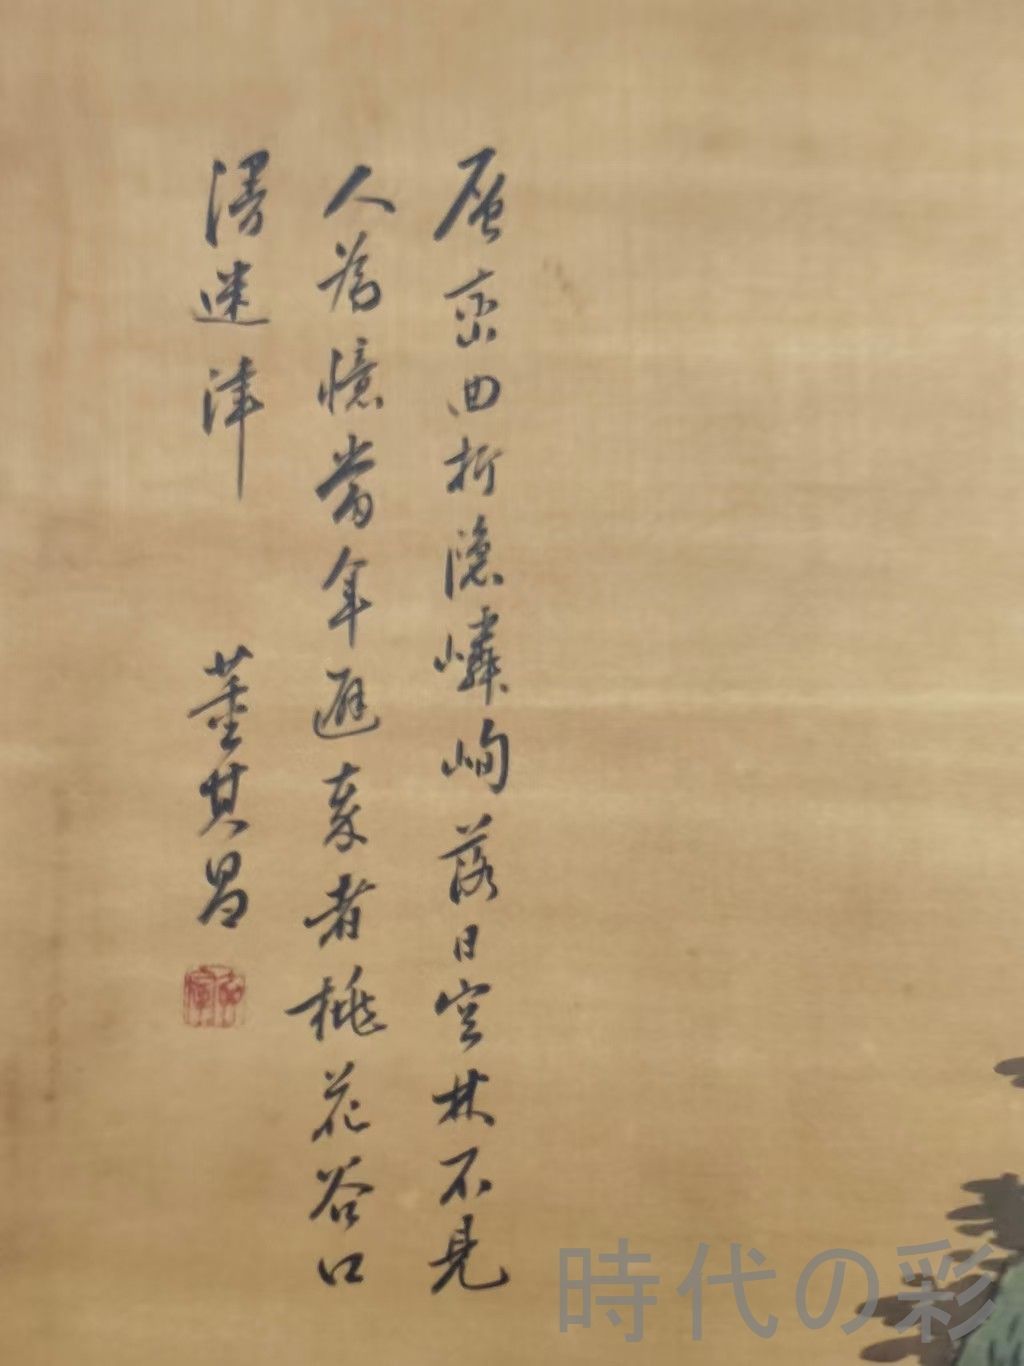 層巒曲折隱嶙峋落日空林不見
人為憶當年避秦者桃花谷口
漫迷津 董其昌
時代の彩